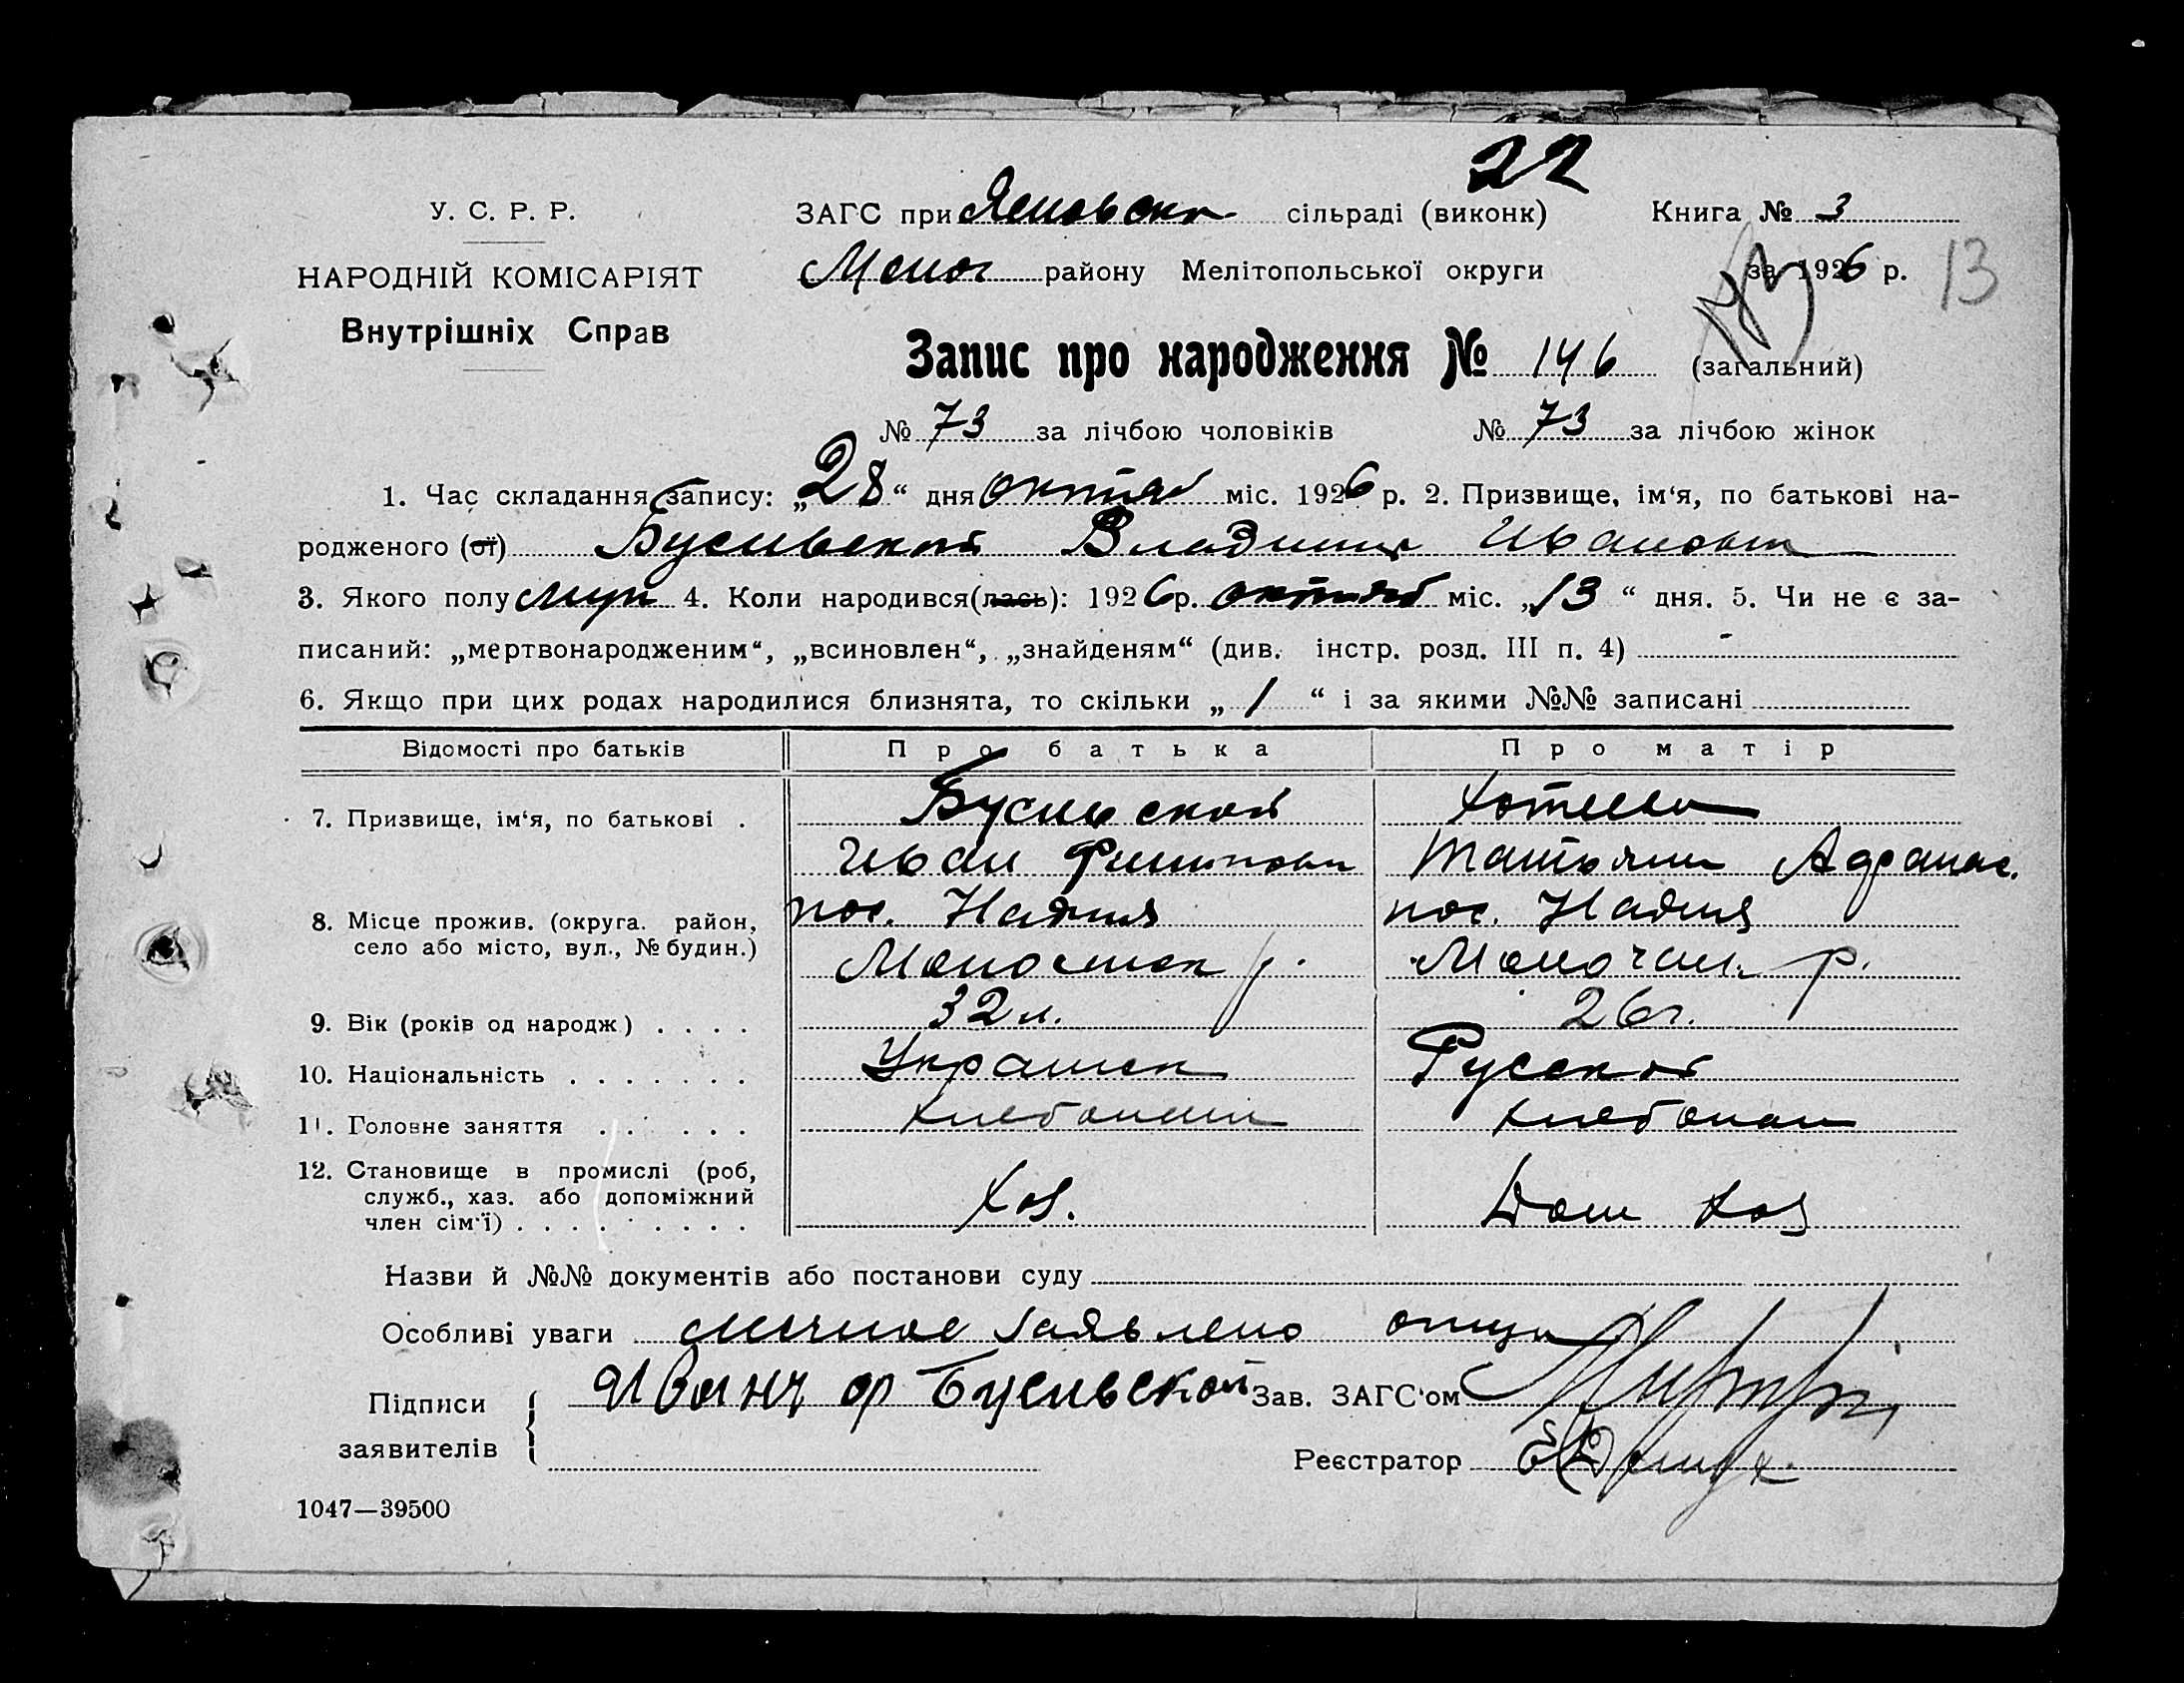 22
У. С. Р. Р.
ЗАГС при сільраді (виконк) Книга № 3
НАРОДНІЙ КОМІСАРІЯТ
району Мелітопольської округи за 1926 р. 13
Внутрішніх Справ
Запис про народження № 146 (загальний)
№ 73 за лічбою чоловіків № 73 за лічбою жінок
1. Час складання запису: „28“ дня октяб міс. 1926 р. 2. Призвище, ім‘я, по батькові на-
родженого (ої) Бусивской Владимир Иванович
3. Якого полу муж 4. Коли народився(лась): 1926 р. октяб міс. „13“ дня. 5. Чи не є за-
писаний: „мертвонародженим“, „всиновлен“, „знайденям“ (див. інстр. розд. III п. 4) -
6. Якщо при цих родах народилися близнята, то скільки „1“ і за якими №№ записані
Відомості про батьків Про батька Про матір
7. Призвище, ім‘я, по батькові . Бусивской
Иван Филипович Татьяна Афанас.
8. Місце прожив. (округа. район, пос. Надия пос. Надия
село або місто, вул., № будин.) р. р.
9. Вік (років од народж) . . . . 32 л. 26 г.
10. Національність . . . . . . . Украинец Русская
11. Головне заняття . . . . . хлебопаш хлебопаш
12. Становище в промислі (роб,
служб., хаз. або допоміжний
член сім‘ї) . . . . . . . . . Хоз. Дом Хоз
Назви й №№ документів або постанови суду
Особливі уваги личное заявлено отца
Підписи Иванъ Ф Бусивской Зав. ЗАГС‘ом
заявителів
Реєстратор
1047—39500